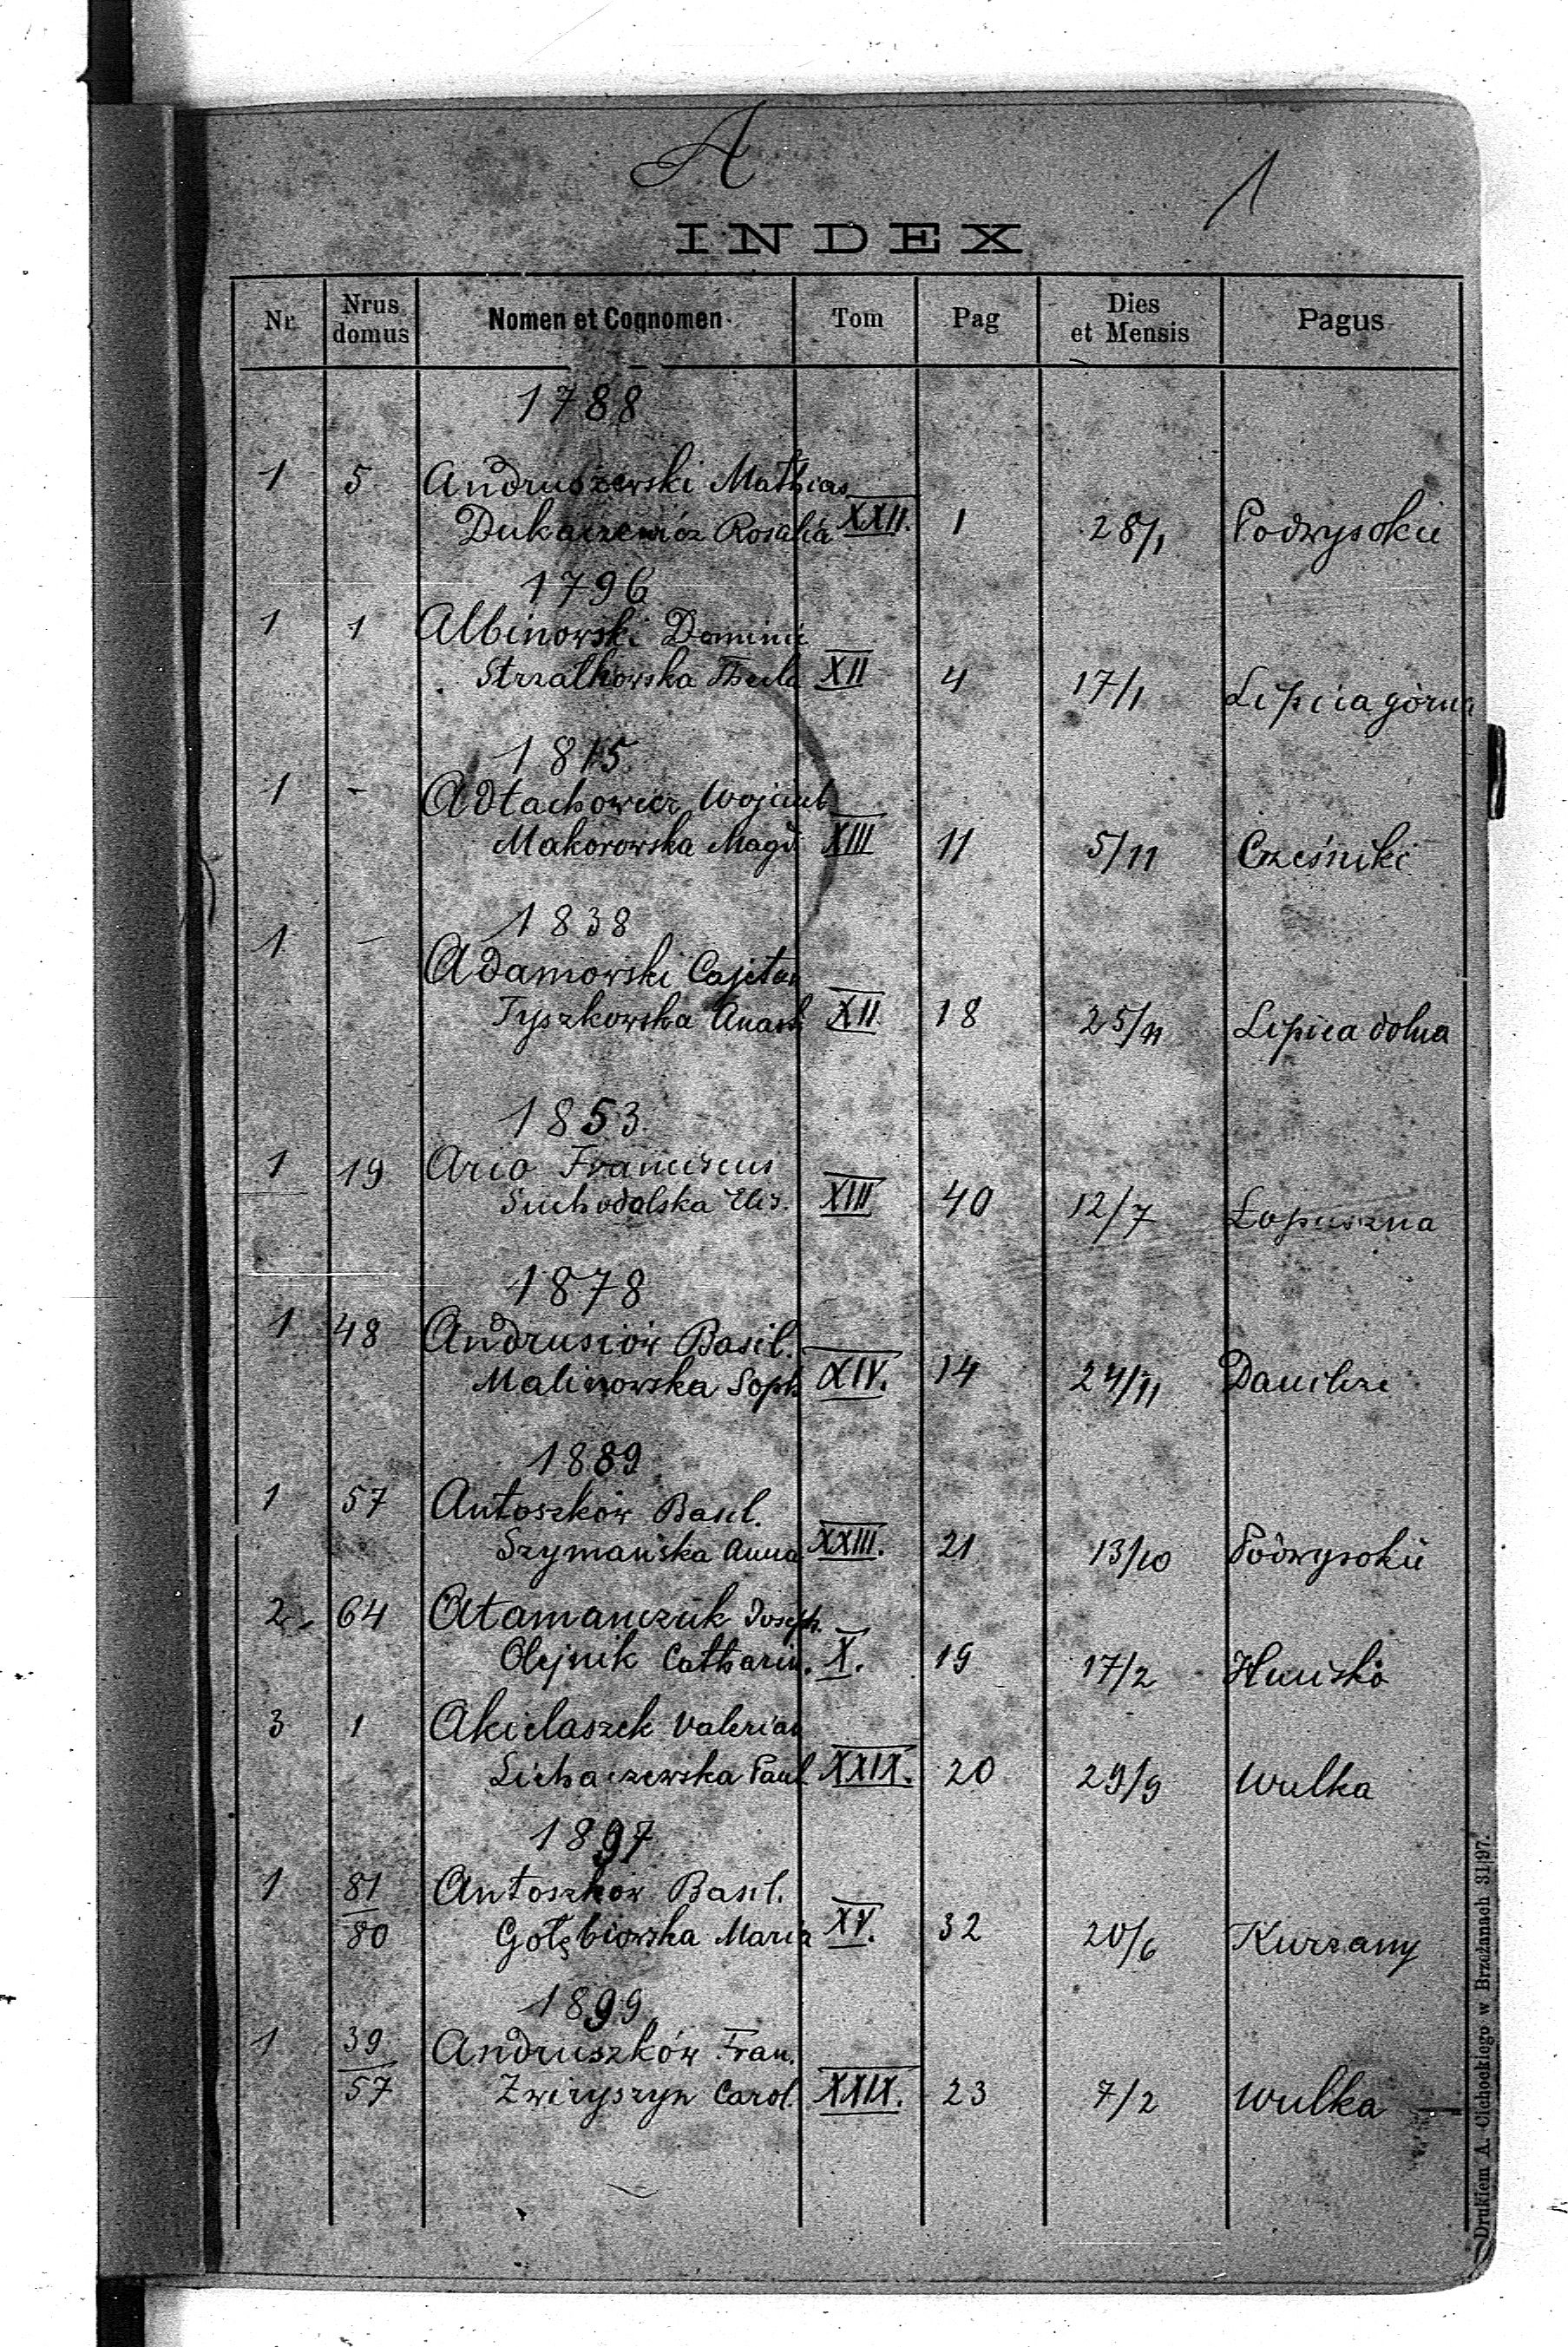 A
1
INDEX
Nr Nrus domus Nomen et Cognomen Tom Pag Dies et Mensis Pagus
1788
1 5 Andruszewski Mathias
Dukaczewicz Rosalia XXII. 1 28/1 Podwysokie
1796
1 1 Albinowski Dominic
Strzałkowska Thecla XII 4 17/1 Lipica górna
1815
1 - Adłachowicz Wojcieh
Makorowska Magd XIII 11 5/11 Cześniki
1838
1 - Adamowski Cajetan
Tyszkowska Anast XII 18 25/11 Lipica dolna
1853
1 19 Ario Franciscus
Suchodolska Elis. XIII 40 12/7 Łopuszna
1878
1 48 Andrusiów Basil.
Malinowska Soph XIV. 14 24/11 Danilcze
1889
1 57 Antoszków Basil.
Szymańska Anna XXIII. 21 13/10 Podwysokie
2. 64 Atamańczuk Joseph.
Olejnik Catharin. X. 19 17/2 Hucisko
3 1 Akielaszek Valerian
Lichaczewska Paul XXIX. 20 29/9 Wulka
1897
1 81/80 Antoszków Basil.
Gołębiowska Maria XV. 32 20/6 Kurzany
1899
1 39/57 Andruszków Fran.
Zwiryszyn Carol. XXIX. 23 7/2 Wulka
Drukiem A. Cichockiego w Brzeżanach 31|97.